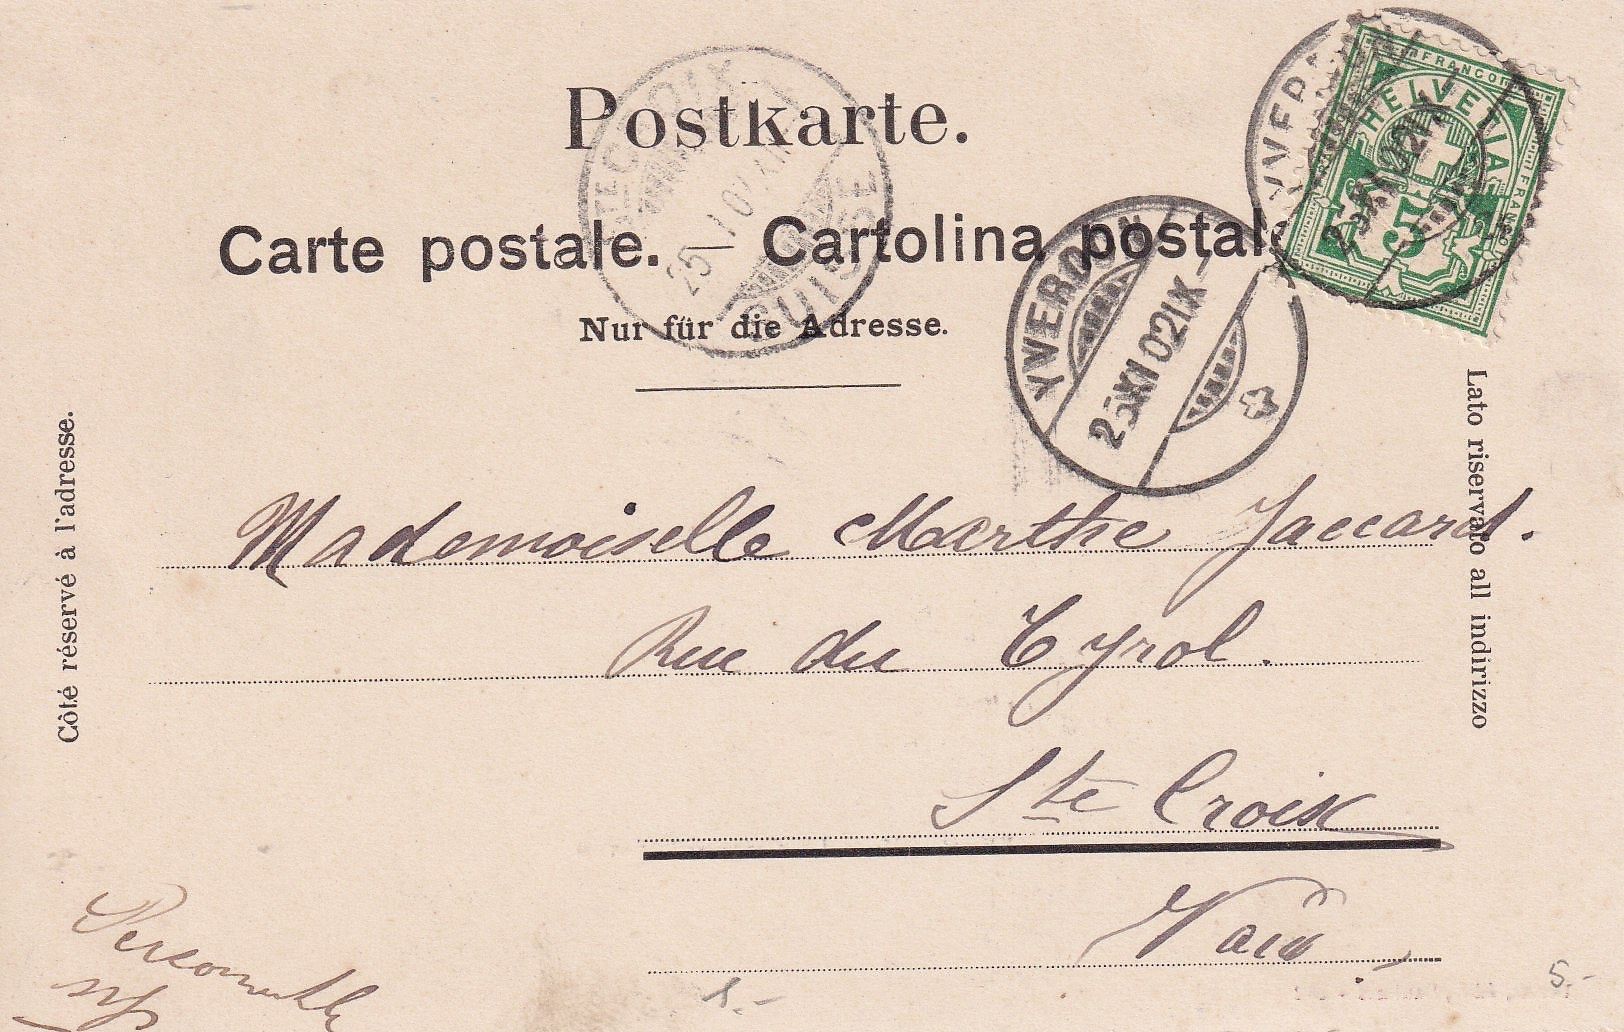 Postkarte.
Carte postale. – Cartolina postale
Nur für die Adresse.
STE CROIX
SUISSE
YVERDON
25 XI 02 IX –
YVERDON
25 XI 02 IX
FRANCO
HELVETIA
FRANCO
5
Côté réservé à l'adresse.
Lato riservato all indirizzo
Mademoiselle Marthe Jaccard.
Rue du Tyrol.
Ste Croix
Vaud
5.-